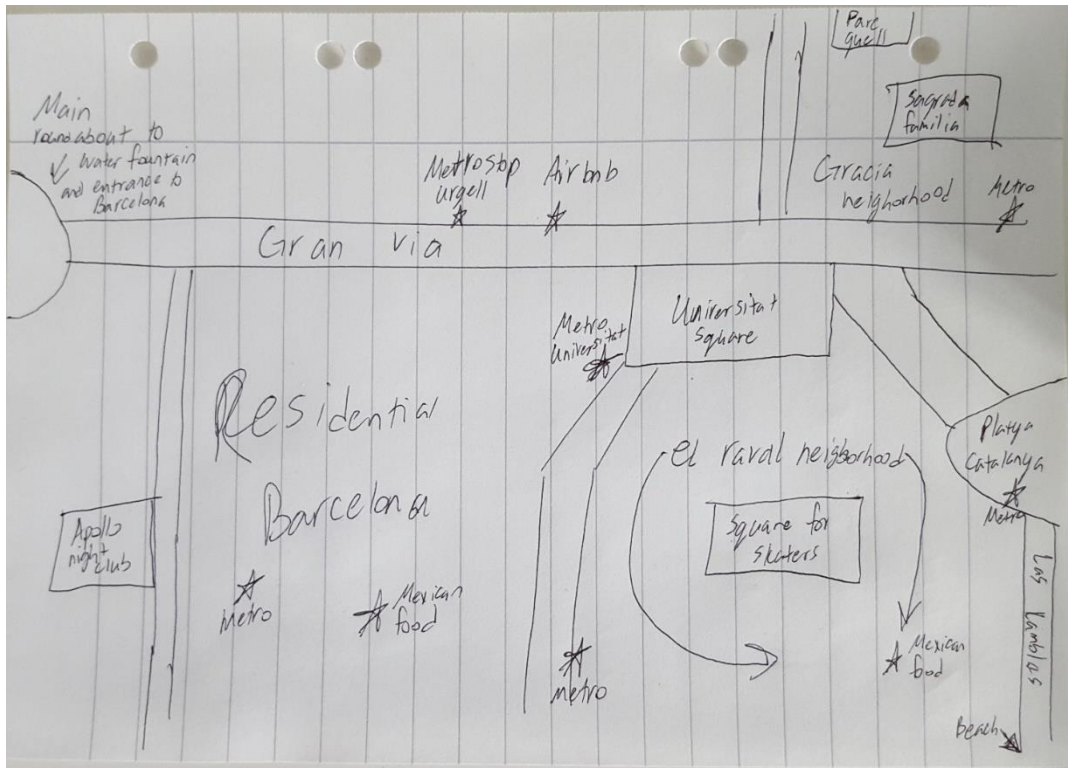 Parc
guell
Sagrada
familia
Main
roundabout to
water fountain
and entrance to
Barcelona
Metrostop
urgell
Airbnb
Gracia
neighorhood
Metro
Gran via
Metro
Universitat
Universitat
Square
Residential
Barcelona
el raval neigborhood
Platya
Catalanya
Metro
Apollo
night
club
Square for
skaters
Metro
Mexican
food
Metro
Mexican
food
Las Ramblas
Beach